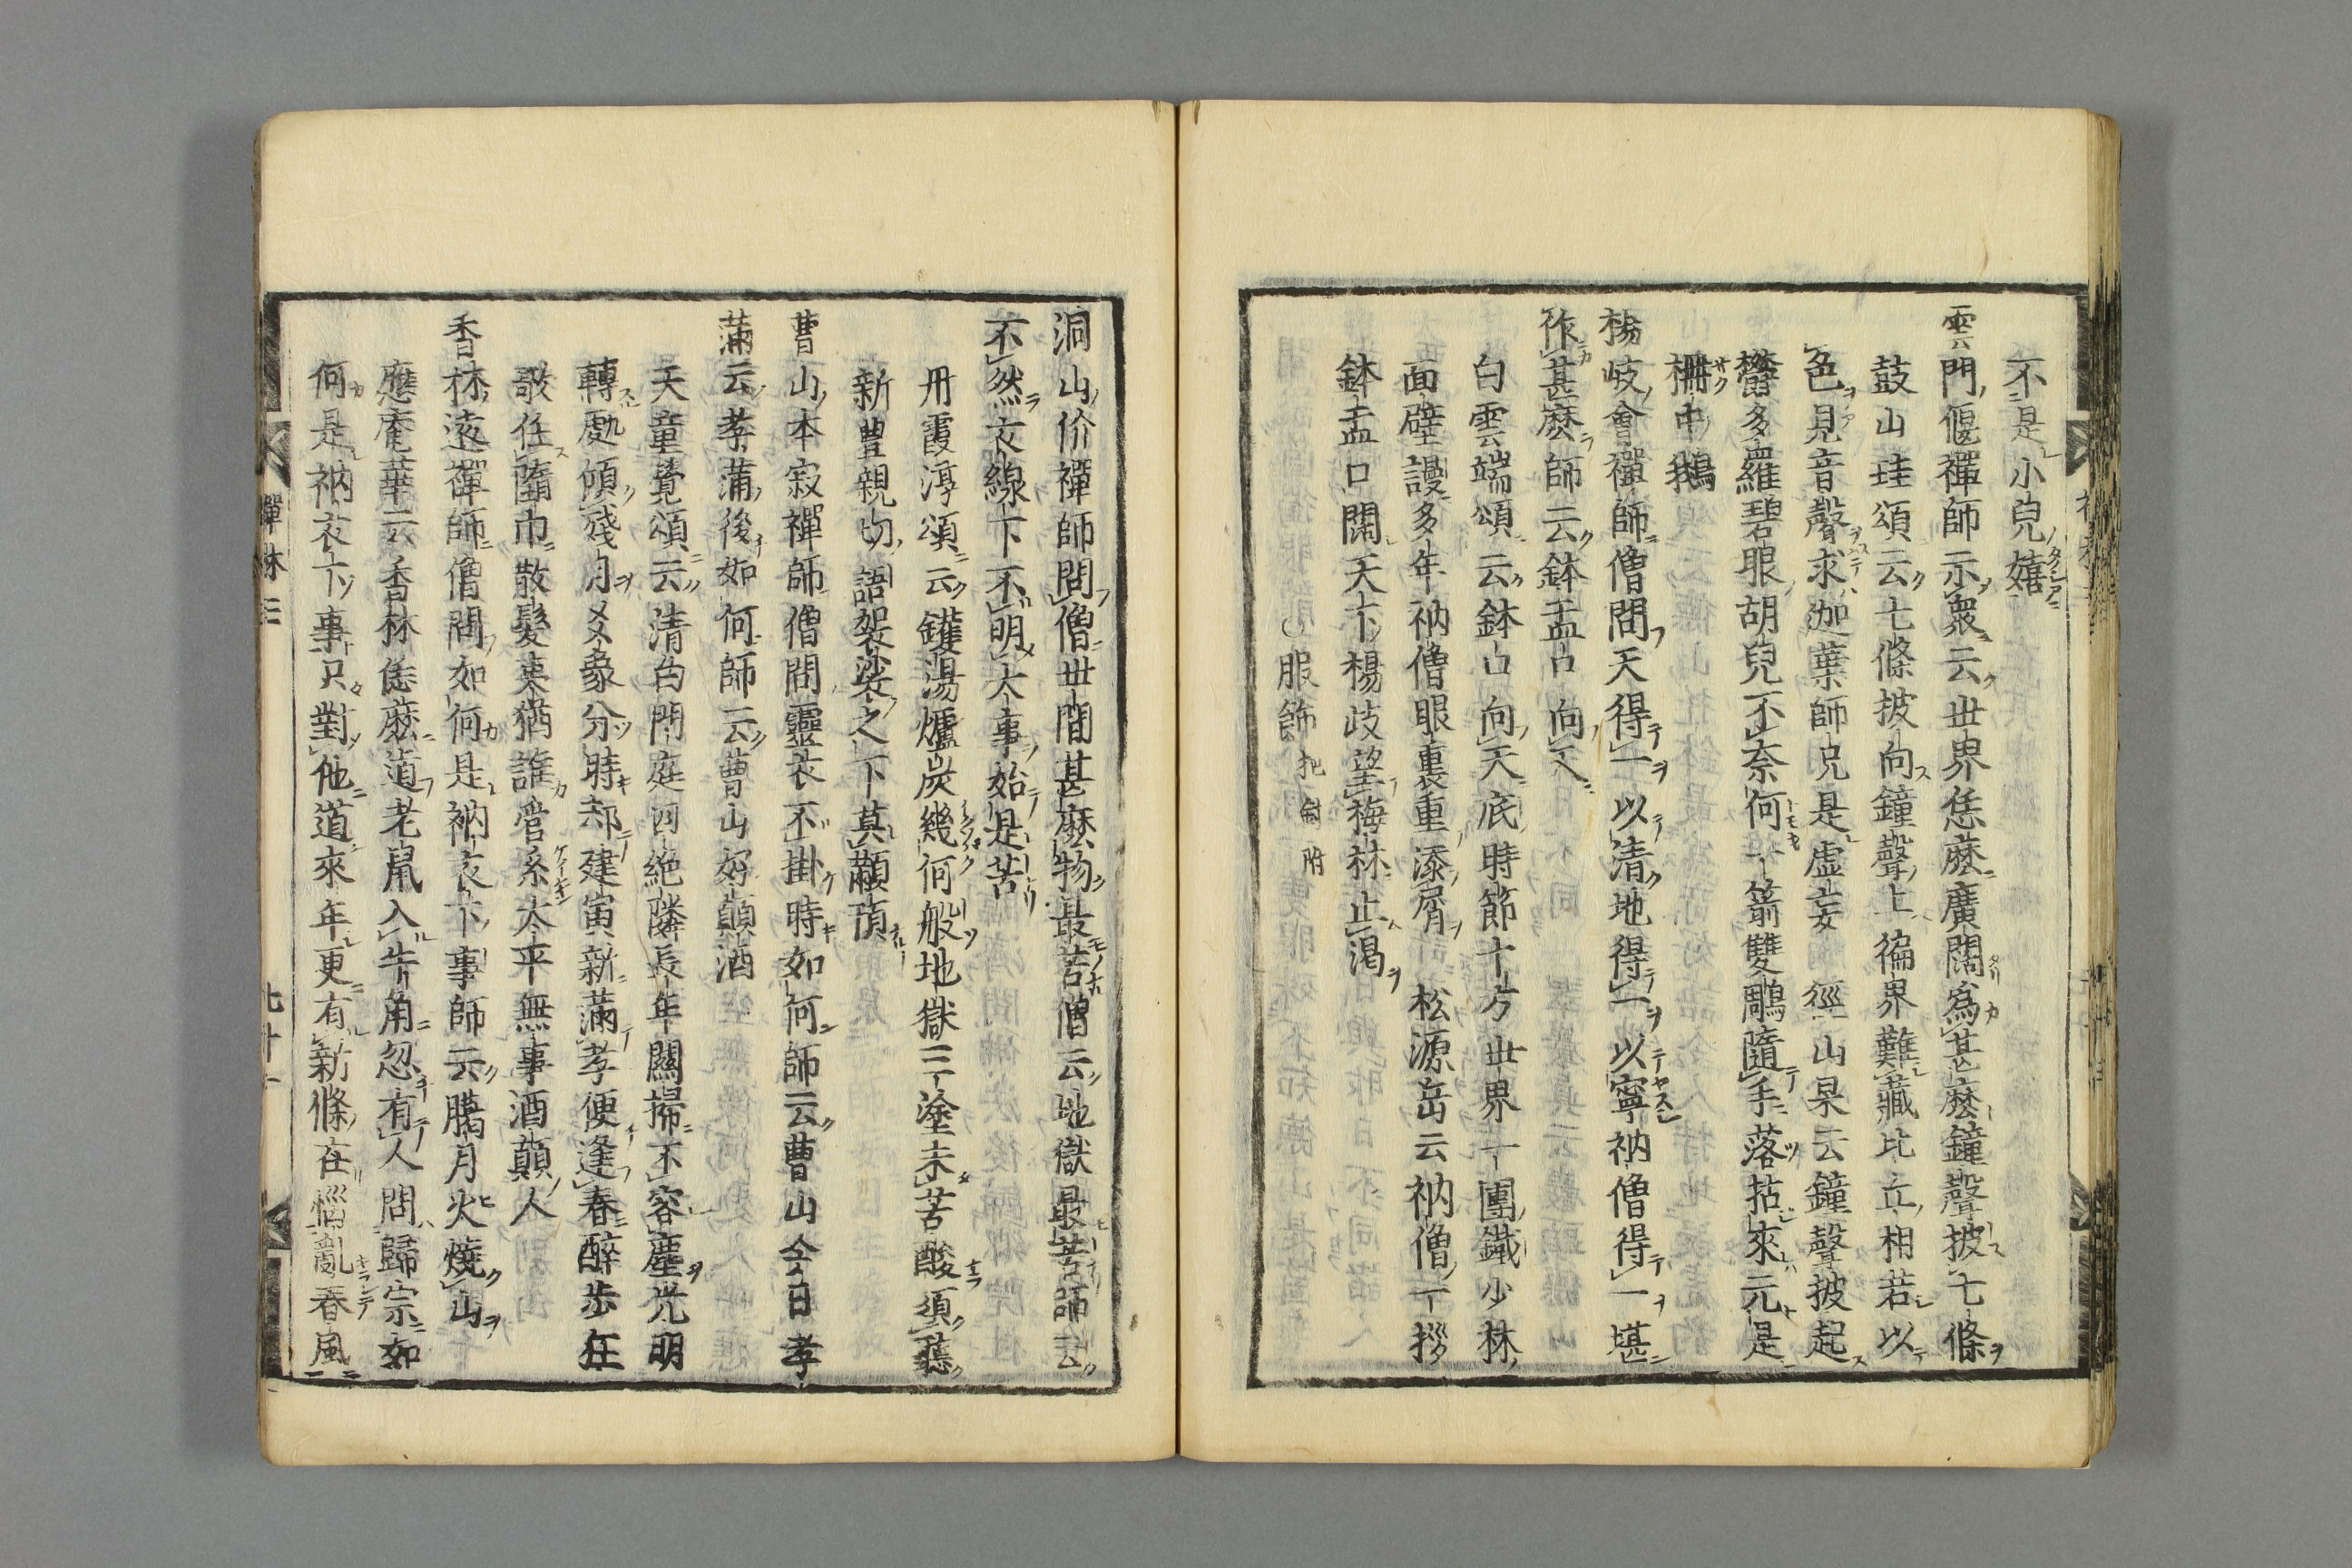 不是小兒嬉
雲門偃禪師示衆云世界恁麼廣闊爲甚麼鐘聲披七條
鼓山珪頌云七條披向鐘聲上徧界難藏比丘相若以
色見音聲求迦葉師兄是虛妄 徑山杲云鐘聲披起
鬱多羅碧眼胡兒不奈何一箭雙鵰隨手落拈來元是
柵中鵝
楊岐會禪師僧問天得一以清地得一以寧衲僧得一堪
作甚麼師云鉢盂口向天
白雲端頌云鉢口向天底時節十方世界一團鐵少林
面壁謾多年衲僧眼裏重添屑 松源岳云衲僧一拶
鉢盂口闊天下楊岐望梅林止渴
服飾
洞山价禪師問僧世間甚麼物最苦僧云地獄最苦師云
不然衣線下不明大事始是苦
丹霞淳頌云鑊湯爐炭幾何般地獄三塗未苦酸須聽
新豊親切語袈裟之下莫顢頇
曹山本寂禪師僧問靈衣不掛時如何師云曹山今日孝
滿云孝滿後如何師云曹山好顛酒
天童覺頌云清白門庭四絶隣長年關掃不容塵光明
轉處傾殘月爻象分時却建寅新滿孝便逢春醉步狂
歌任墮巾散髮夷猶誰管系太平無事酒顛人
香林遠禪師僧問如何是衲衣下事師云臈月火燒山
應菴華云香林恁麼道老鼠入牛角忽有人問歸宗如
何是衲衣下事只對他道來年更有新條在惱亂春風
禪林三
七十一